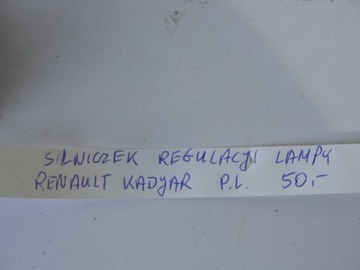 SILNICZEK REGULACJI LAMPY
RENAULT KADJAR P.L. 50,-